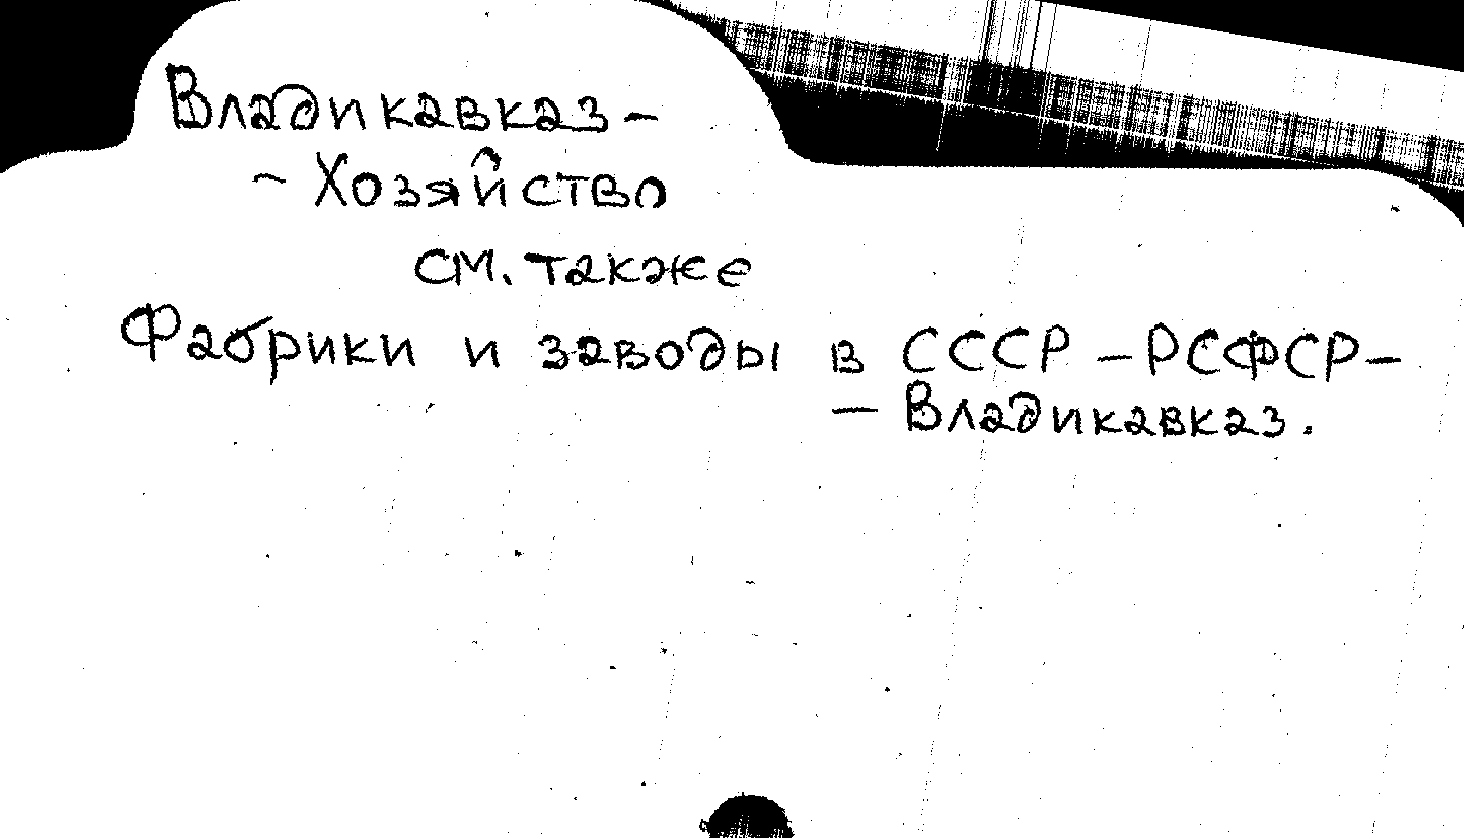 Владикавказ -
- Хозяйство
см. также
Фабрики и заводы в СССР - РСФСР -
- Владикавказ.